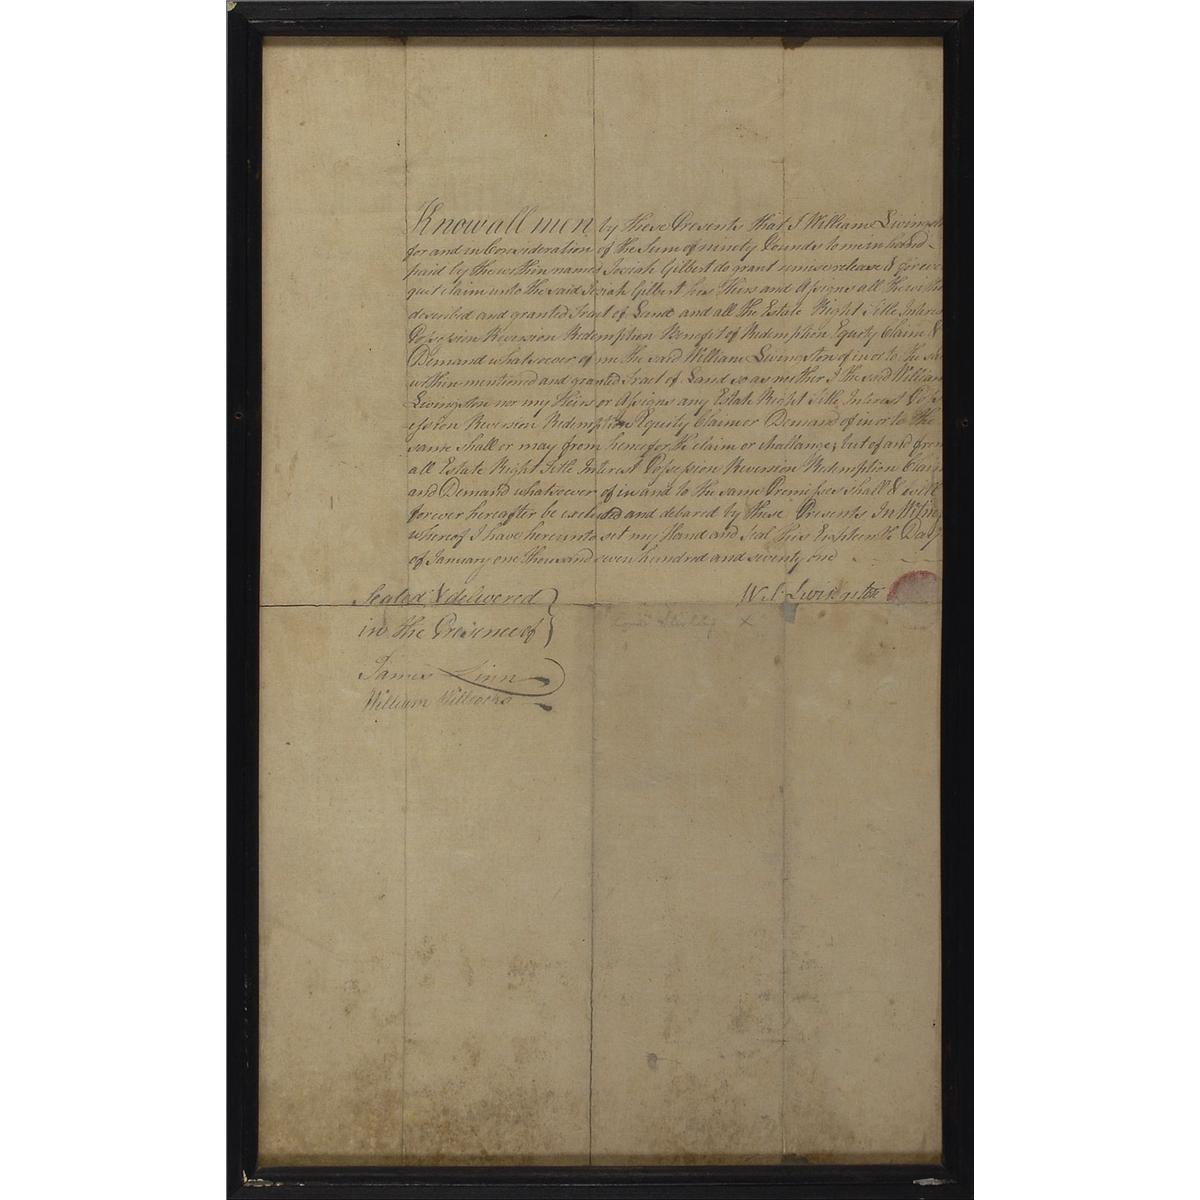 Know all men by these Presents that I William Livingst
for and in Consideration of the Sum of ninety Pounds to me in hand
paid by the within named Josiah Gilbert do grant remise release & forev
quit claim unto the said Josiah Gilbert his Heirs and Assigns all the with
described and granted Tract of Land and all the Estate Right Title Interes
Possession Reversion Redemption Benefit of Redemption Equity Claim &
Demand whatsoever of me the said William Livingston of in or to the sa
within mentioned and granted Tract of Land so as neither I the said William
Livingston nor my Heirs or Assigns any Estate Right Title Interest Poss
ession Reversion Redemption Equity Claim or Demand of in or to the
same shall or may from henceforth claim or challange; but of and from
all Estate Right Title Interest Possession Reversion Redemption Claim
and Demand whatsoever of in and to the same Premisses shall & will
forever hereafter be excluded and debared by these Presents In Witne
whereof I have hereunto set my Hand and Seal this Eighteenth Day
of January one thousand seven hundred and seventy one
Sealed & delivered
in the Presence of
Wil. Livingston
James Linn
William Willcocks